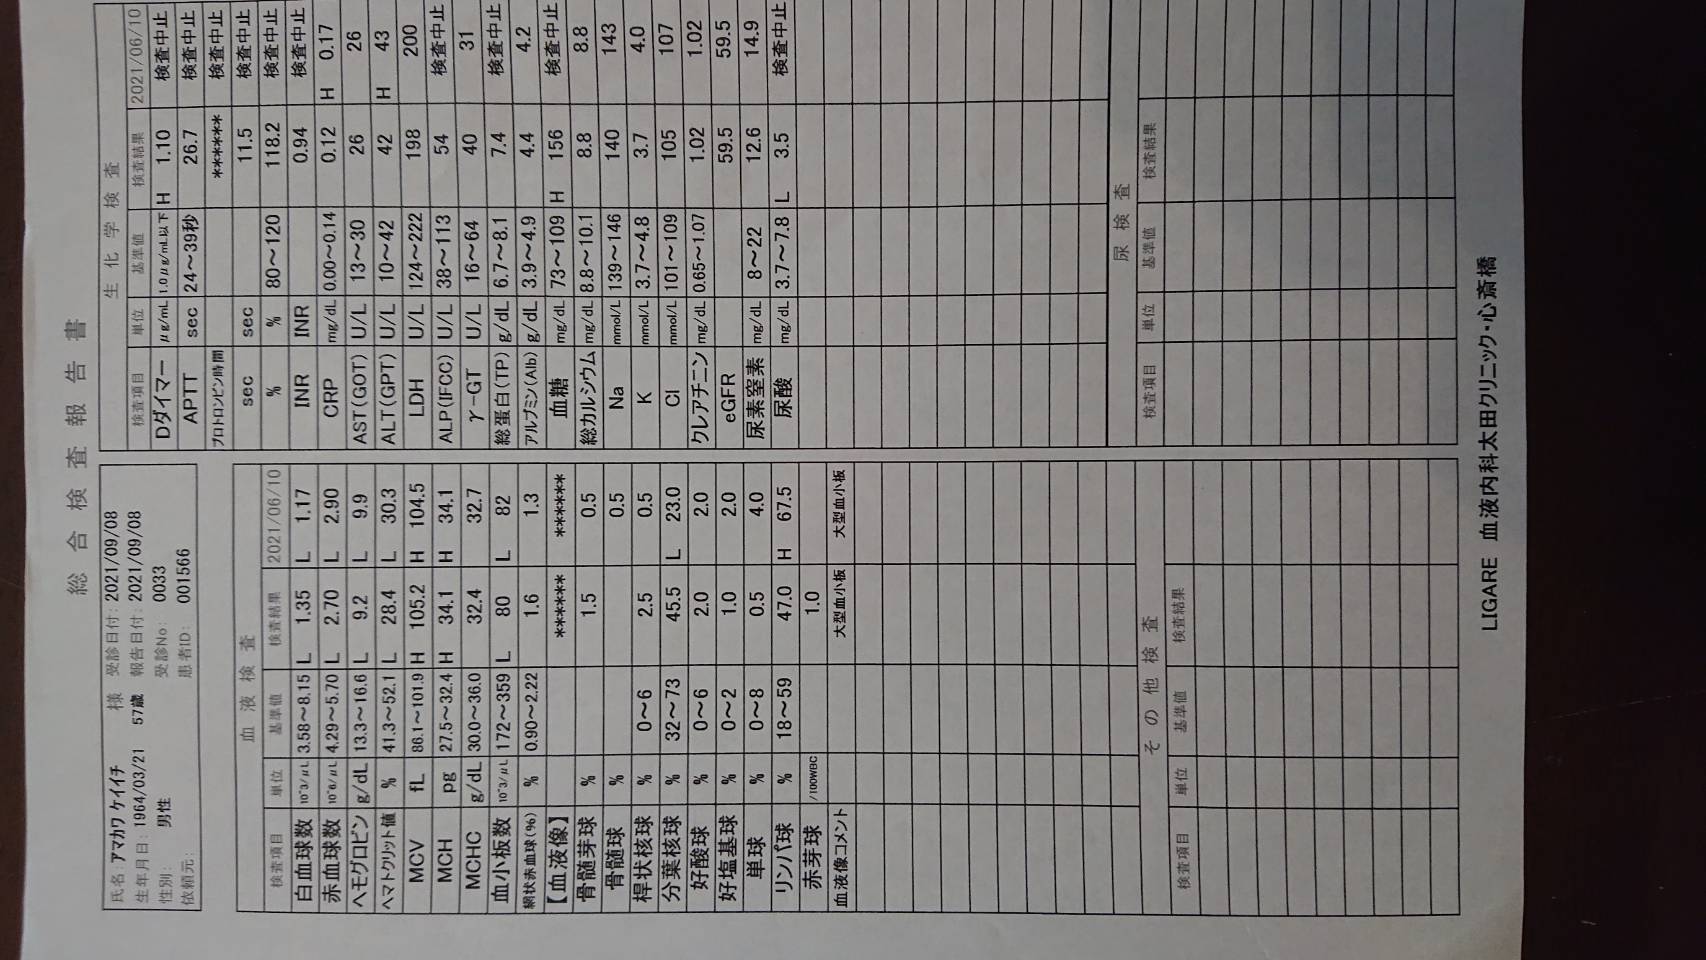 総合検査報告書
氏名 アマカワ ケイイチ 様 受診日付: 2021/09/08
生年月日: 1964/03/21 57歳 報告日付: 2021/09/08
性別: 男性 受診No: 0033
依頼元: 患者ID: 001566
血液検査
検査項目 単位 基準値 検査結果 2021/06/10
白血球数 10^3/μL 3.58～8.15 L 1.35 L 1.17
赤血球数 10^6/μL 4.29～5.70 L 2.70 L 2.90
ヘモグロビン g/dL 13.3～16.6 L 9.2 L 9.9
ヘマトクリット値 % 41.3～52.1 L 28.4 L 30.3
MCV fL 86.1～101.9 H 105.2 H 104.5
MCH pg 27.5～32.4 H 34.1 H 34.1
MCHC g/dL 30.0～36.0 32.4 32.7
血小板数 10^3/μL 172～359 L 80 L 82
網状赤血球(%) % 0.90～2.22 1.6 1.3
【血液像】 ***** *****
骨髄芽球 % 1.5 0.5
骨髄球 % 0.5
桿状核球 % 0～6 2.5 0.5
分葉核球 % 32～73 45.5 L 23.0
好酸球 % 0～6 2.0 2.0
好塩基球 % 0～2 1.0 2.0
単球 % 0～8 0.5 4.0
リンパ球 % 18～59 47.0 H 67.5
赤芽球 /100WBC 1.0
血液像コメント 大型血小板 大型血小板
その他検査
検査項目 単位 基準値 検査結果
生化学検査
検査項目 単位 基準値 検査結果 2021/06/10
Dダイマー μg/mL 1.0μg/mL以下 H 1.10 検査中止
APTT sec 24～39秒 26.7 検査中止
プロトロンビン時間 ***** 検査中止
sec sec 11.5 検査中止
% % 80～120 118.2 検査中止
INR INR 0.94 検査中止
CRP mg/dL 0.00～0.14 0.12 H 0.17
AST(GOT) U/L 13～30 26 26
ALT(GPT) U/L 10～42 42 H 43
LDH U/L 124～222 198 200
ALP(IFCC) U/L 38～113 54 検査中止
γ-GT U/L 16～64 40 31
総蛋白(TP) g/dL 6.7～8.1 7.4 検査中止
アルブミン(Alb) g/dL 3.9～4.9 4.4 4.2
血糖 mg/dL 73～109 H 156 検査中止
総カルシウム mg/dL 8.8～10.1 8.8 8.8
Na mmol/L 139～146 140 143
K mmol/L 3.7～4.8 3.7 4.0
Cl mmol/L 101～109 105 107
クレアチニン mg/dL 0.65～1.07 1.02 1.02
eGFR 59.5 59.5
尿素窒素 mg/dL 8～22 12.6 14.9
尿酸 mg/dL 3.7～7.8 L 3.5 検査中止
尿検査
検査項目 単位 基準値 検査結果
LIGARE 血液内科太田クリニック・心斎橋